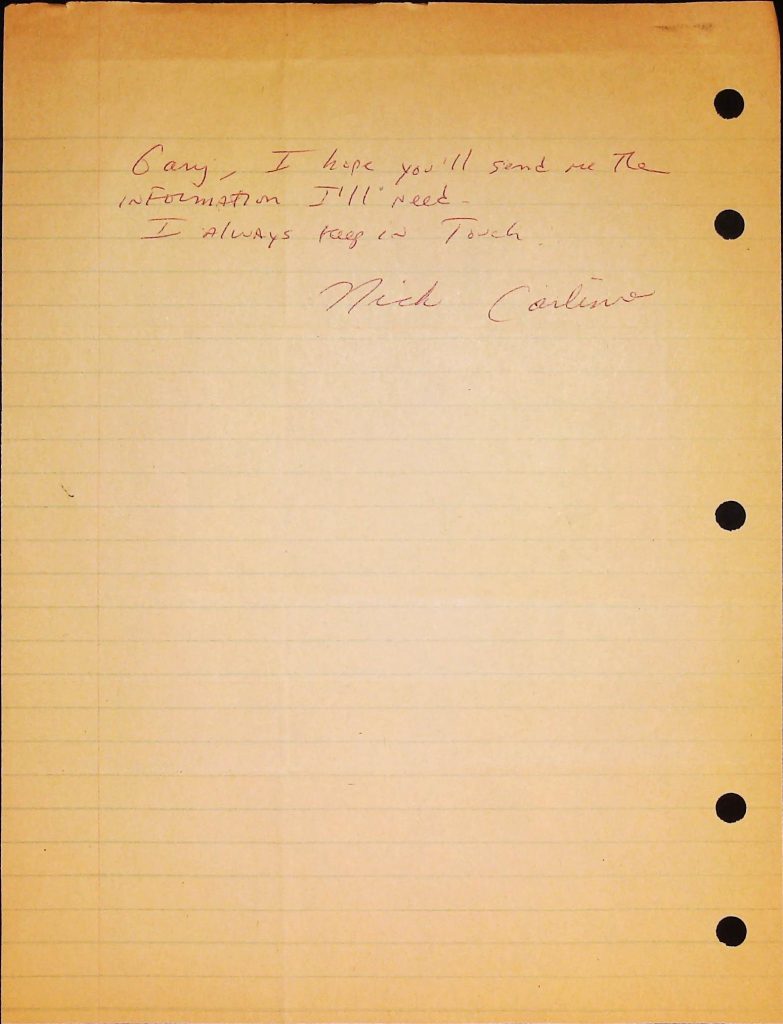 Gary, I hope you'll send me The
INFORMATION I'll Need -
I Always Keep in Touch.
Nick